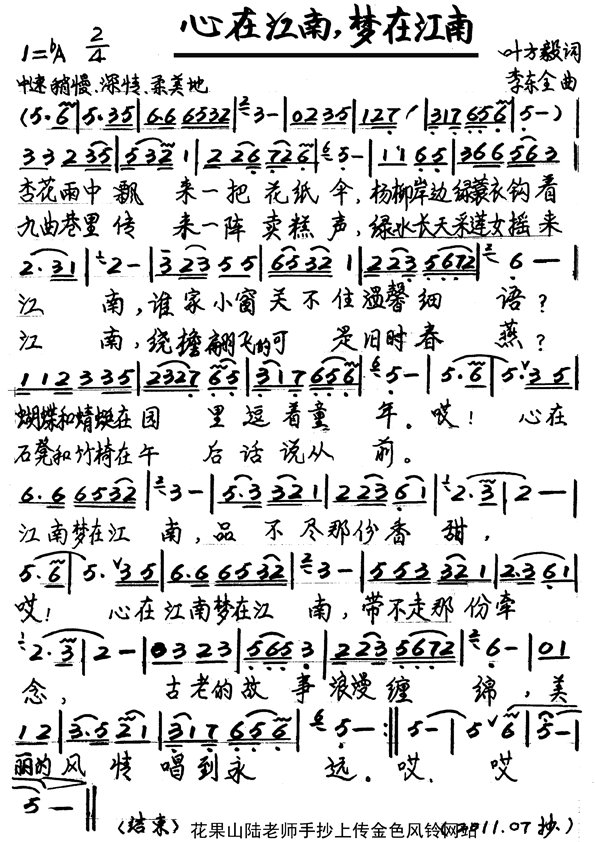 心在江南,梦在江南
1=♭A 2/4
叶方毅词
中速稍慢、深情、柔美地
李东全曲
(5·6|5·35|6·6 6532|3-|0235|127(|317 656|5-)
332 35|5 332 1|226 726|5-|11 65|366 563
杏花雨中飘 来一把花纸伞,杨柳岸边绿蓑衣钩着
九曲巷里传 来一阵卖糕声,绿水长天采莲女摇来
2·31|2-|3 23 55|65 32 1|223 5672|6-|
江 南,谁家小窗关不住温馨细 语?
江 南,绕檐翩飞的可 是旧时春 燕?
112 335|2327 65|317 656|5-|5·6|5·∨35
蝴蝶和蜻蜓在园 里逗着童 年。哎! 心在
石凳和竹椅在午 后话说从 前。
6·6 6532|3-|5·3 3321|223 61|2·3|2-|
江南梦在江 南,品不尽那份香 甜,
5·6|5·∨35|6·6 6532|3-|553 321|2·3 61|
哎! 心在江南梦在江 南,带不走那份牵
2·3|2-|03 23|5653|223 5672|6-|01
念, 古老的故事浪漫缠 绵,美
12|3·5 21|317 656|5-:‖5-|5∨6|5-|
丽的风 情唱到永 远。哎. 哎
5-‖
(结束) 花果山陆老师手抄上传金色风铃网站 11.07抄.)